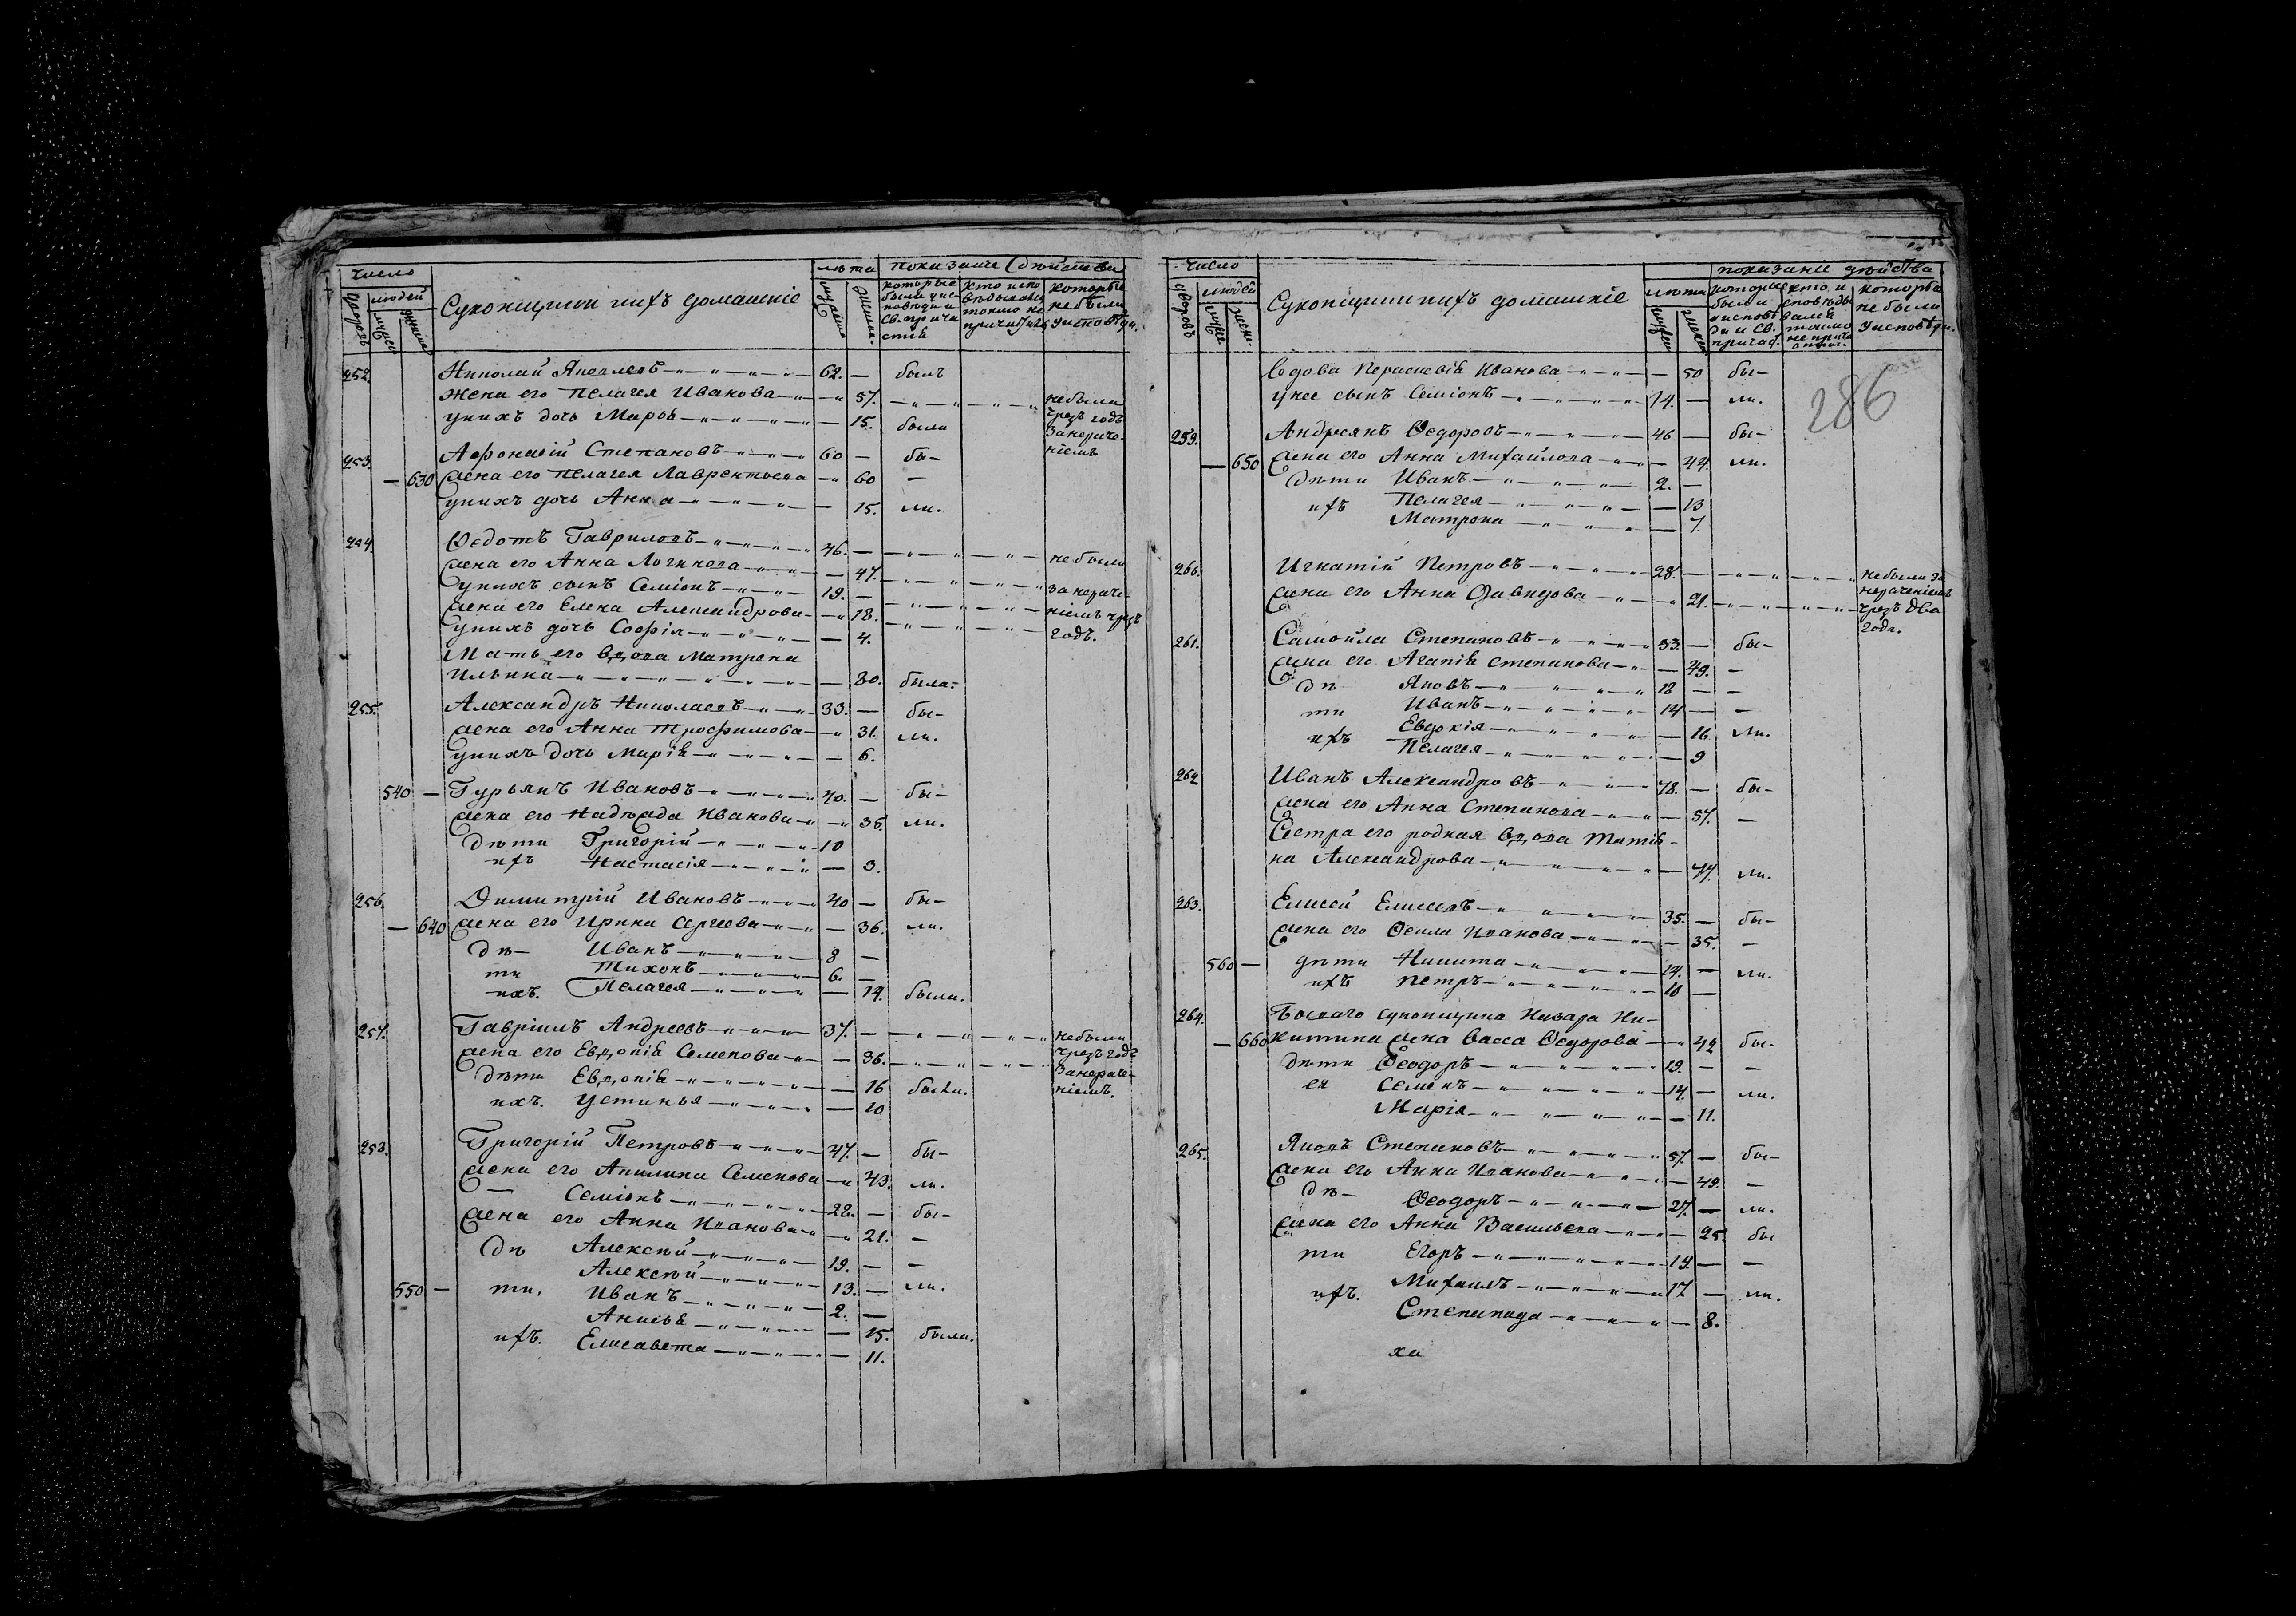 число
лѣта показанiе дѣйства
дворовъ людей мужес. женска.
Сукнщики ихъ домашнiе
мужеска женска.
которые были у исповѣди и св. причастiя
кто исповѣдывался токмо не причаст.
которые не были у исповѣди.
252. Николай Яковлевъ 62. — былъ
Жена его Пелагея Иванова — 57. не были
у нихъ дочь Марѳа — 15. была чрезъ годъ
за нераче-
нiемъ
253. Аѳонасiй Степановъ 60 — бы-
— 630 жена его Пелагея Лаврентьева — 60 —
у нихъ дочь Анна — 15. ли.
254. Ѳедотъ Гавриловъ 46. — не были
жена его Анна Логинова — 47.
у нихъ сынъ Семiонъ 19. — за нераче-
жена его Елена Александрова — 18. нiемъ чрезъ
у нихъ дочь Софiя — 4. годъ.
Мать его вдова Матрена
Ильина — 80. была.
255. Александръ Николаевъ 33. — бы-
жена его Анна Трофимова — 31. ли.
у нихъ дочь Марiя — 6.
540 — Гурьянъ Ивановъ 40. — бы-
жена его Надежда Иванова — 36. ли.
дѣти Григорiй 10
ихъ Настасiя — 3.
256. Димитрiй Ивановъ 40 — бы-
— 640 жена его Ирина Сергеева — 36. ли.
дѣ- Иванъ 8 —
ти Тихонъ 6. —
ихъ. Пелагея — 14. была.
257. Гаврiилъ Андреевъ 37. — не были
жена его Евдокiя Семенова — 36. чрезъ годъ
за нераче-
дѣти Евдокiя — 16 была. нiемъ.
ихъ. Устинья — 10
258. Григорiй Петровъ 47. — бы-
жена его Акилина Семенова — 43. ли.
— Семiонъ 22. — бы-
жена его Анна Иванова — 21. —
дѣ Алексѣй 19. — —
Алексѣй 13. — ли.
550 — ти. Иванъ 2. —
Анисья — 15. была.
ихъ. Елисавета — 11.
число
показанiе дѣйства
дворовъ людей мужес. женс.
Сукнщики ихъ домашнiе
лѣта
которые были у исповѣди и св. причаст.
кто исповѣдывался токмо не причаст.
которые не были у исповѣди.
286
Вдова Парасковiя Иванова — 50 бы-
у нее сынъ Семiонъ 14. — ли.
259. Андреянъ Ѳедоровъ 46 — бы-
— 650 жена его Анна Михайлова — 44. ли.
дѣти Иванъ 2. —
ихъ Пелагея — 13
Матрена — 7.
260. Игнатiй Петровъ 28. — не были за
жена его Анна Давыдова — 21. нераченiемъ
чрезъ два
года.
261. Самойла Степановъ 53. — бы-
жена его Агапiя Степанова — 49. —
дѣ Яковъ 18 — —
ти Иванъ 14 — —
ихъ Евдокiя — 16 ли.
Пелагея — 9
262 Иванъ Александровъ 78. — бы-
жена его Анна Степанова — 57. —
Сестра его родная вдова Татiя-
на Александрова — 77. ли.
263. Елисей Елисеевъ 35. — бы-
жена его Ѳекла Иванова — 35. —
560 — дѣти Никита 14. — ли.
ихъ Петръ 10 —
264. Бывшаго суконщика Назара Ни-
— 660 китина жена Васса Ѳедорова — 42 бы-
дѣти Ѳеодоръ 19. — —
ея Семенъ 14. — ли.
Марiя — 11.
265. Яковъ Степановъ 57. — бы-
жена его Анна Иванова — 49. —
дѣ- Ѳеодоръ 27. — ли.
жена его Анна Васильева — 25. бы
ти Егоръ 19. — —
ихъ. Михаилъ 17 — ли.
Степанида — 8.
ха